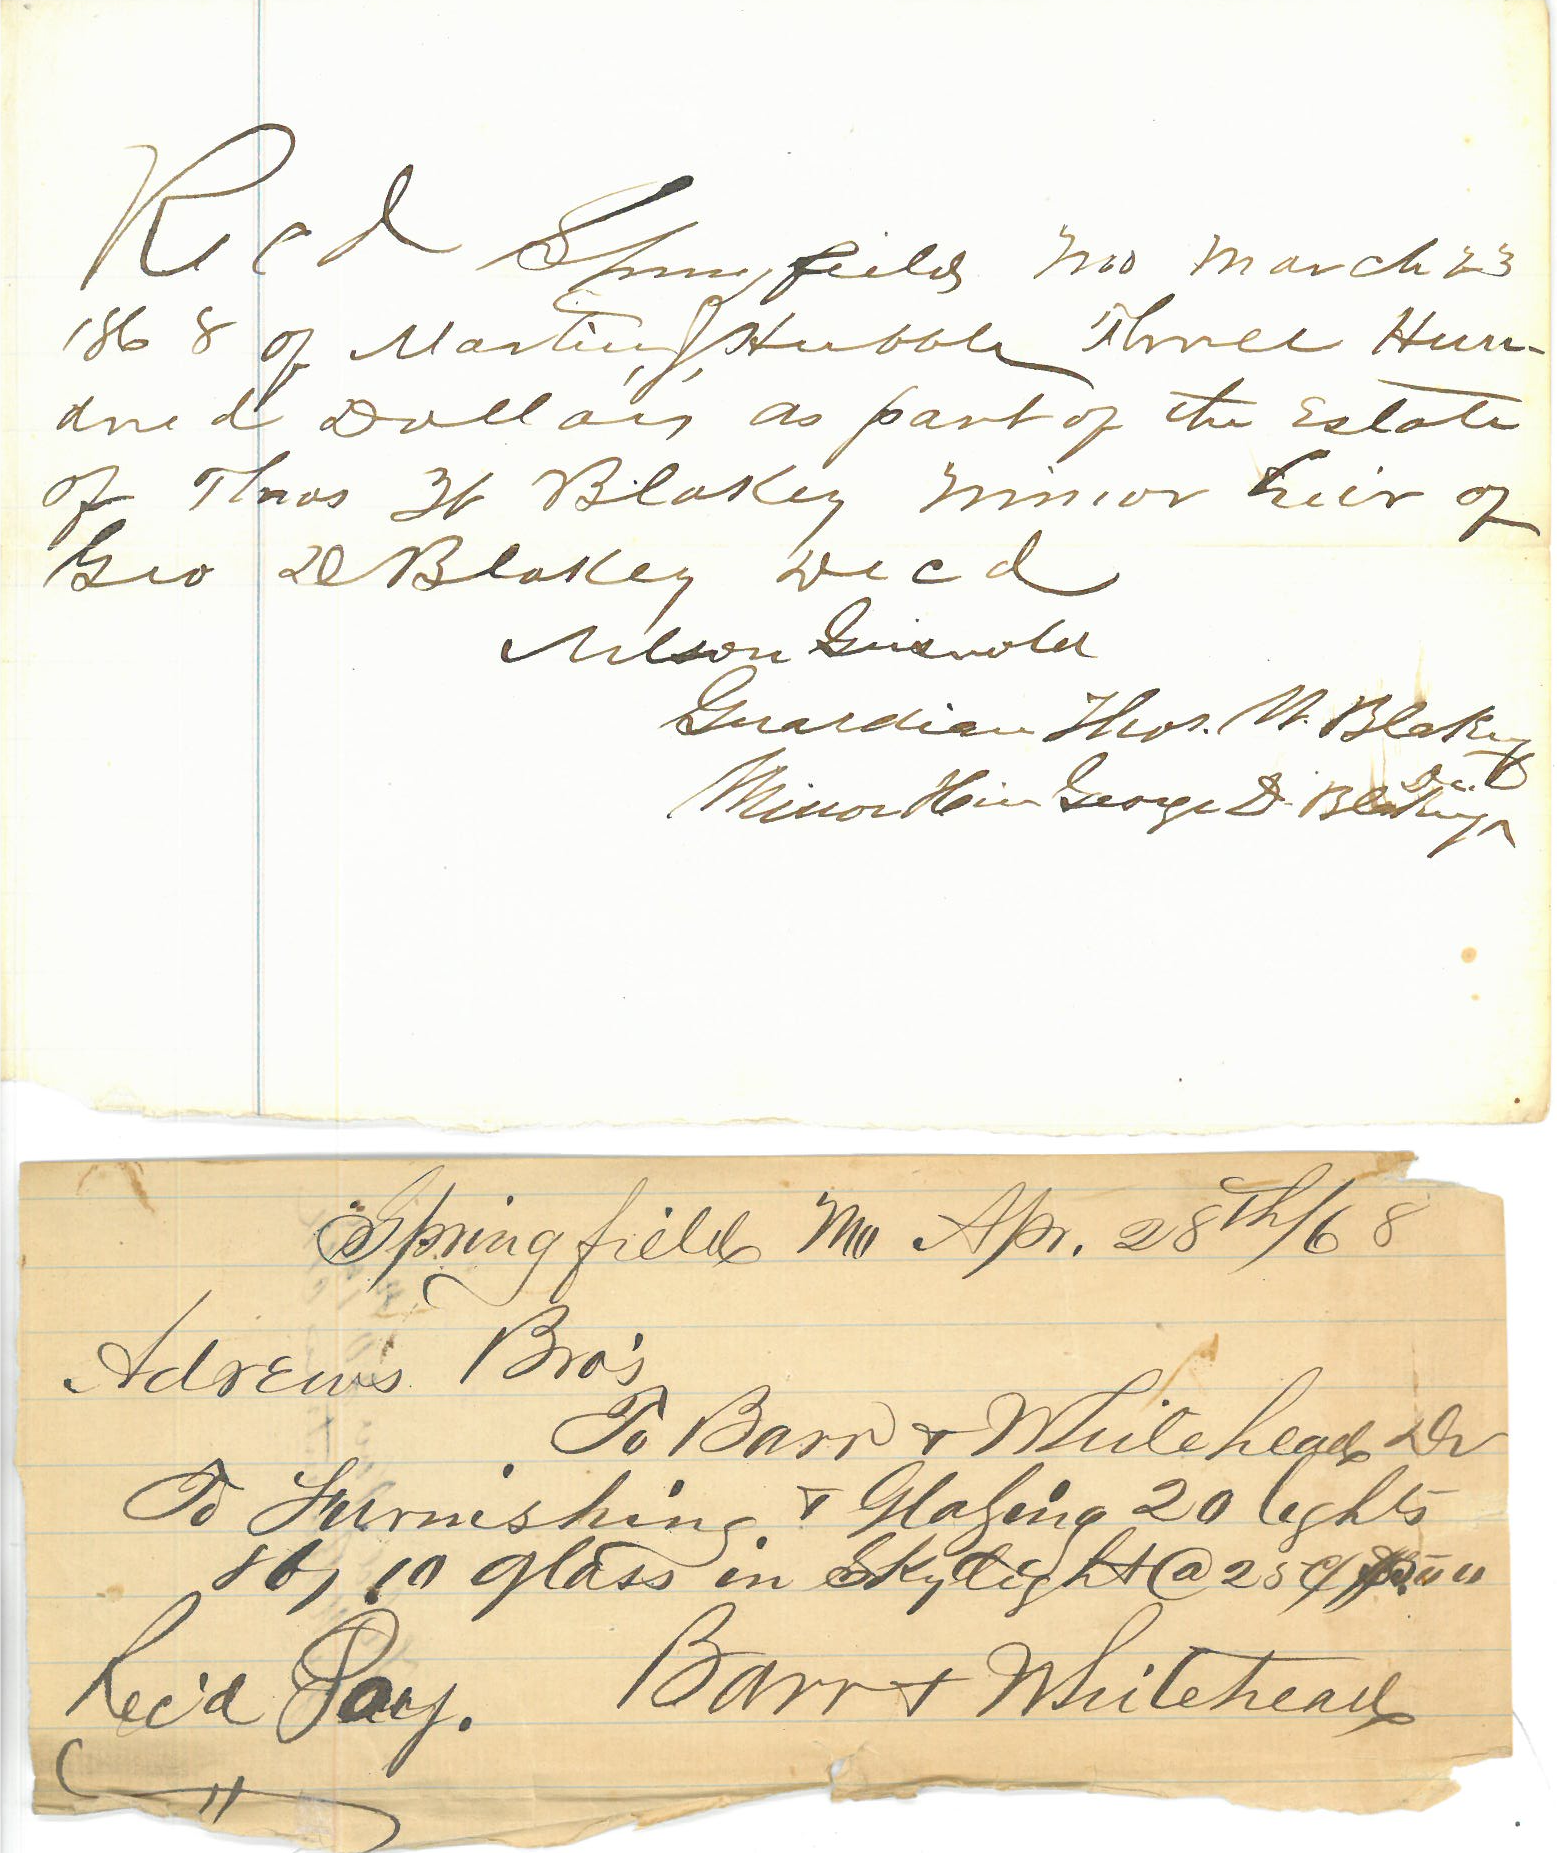 Recd Springfield Mo March 23
1868 of Martin J, Hubble Three Hun-
dred Dollars as part of the Estate
of Thos H Blakey minor heir of
Geo D Blakey Decd
Nelson Griswold
Guardian Thos. H. Blakey
Minor Heir George D. Blakey Dec.d
Springfield Mo Apr. 28th/68
Adrews Bro's
To Barr & Whitehead Dr
To Furnishing & Glazing 20 lights
8 by 10 glass in Skylight @ 25 c/
Rec'd Pay. Barr & Whitehead